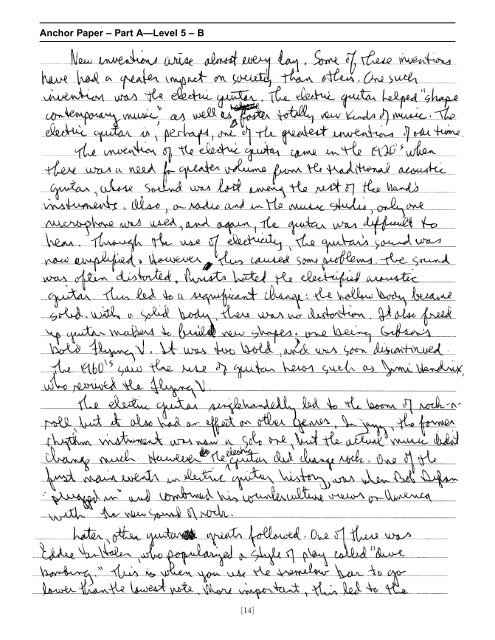 Anchor Paper – Part A—Level 5 – B
New inventions arise almost every day. Some of these inventions
have had a greater impact on society than others. One such
invention was the electric guitar. The electric guitar helped "shape
contemporary music", as well as foster totally new kinds of music. The
electric guitar is, perhaps, one of the greatest inventions of our time.
The invention of the electric guitar came in the 1920's when
there was a need for greater volume from the traditional acoustic
guitar, whose sound was lost among the rest of the band's
instruments. Also, on radio and in the music studio, only one
microphone was used, and again, the guitar was difficult to
hear. Through the use of electricity, the guitar's sound was
now amplified. However, this caused some problems. The sound
was often distorted. Purists hated the electrified acoustic
guitar. This led to a significant change: the hollow body became
solid. With a solid body, there was no distortion. It also freed
up guitar makers to build new shapes, one being Gibson's
bold Flying V. It was too bold, and was soon discontinued.
The 1960's saw the rise of guitar heros such as Jimi Hendrix,
who revived the Flying V.
The electric guitar singlehandedly led to the boom of rock-n-
roll but it also had an effect on other genres. In jazz, the former
rhythm instrument was now a solo one, but the actual music didn't
change much. However the electric guitar did change rock. One of the
first main events in electric guitar history was when Bob Dylan
"plugged in" and combined his counterculture views on America
with the new sound of rock.
Later, other guitar greats followed. One of these was
Eddie Van Halen, who popularized a style of play called "dive
bombing." This is when you use the tremelow bar to go
lower than the lowest note. More important, this led to the
[14]